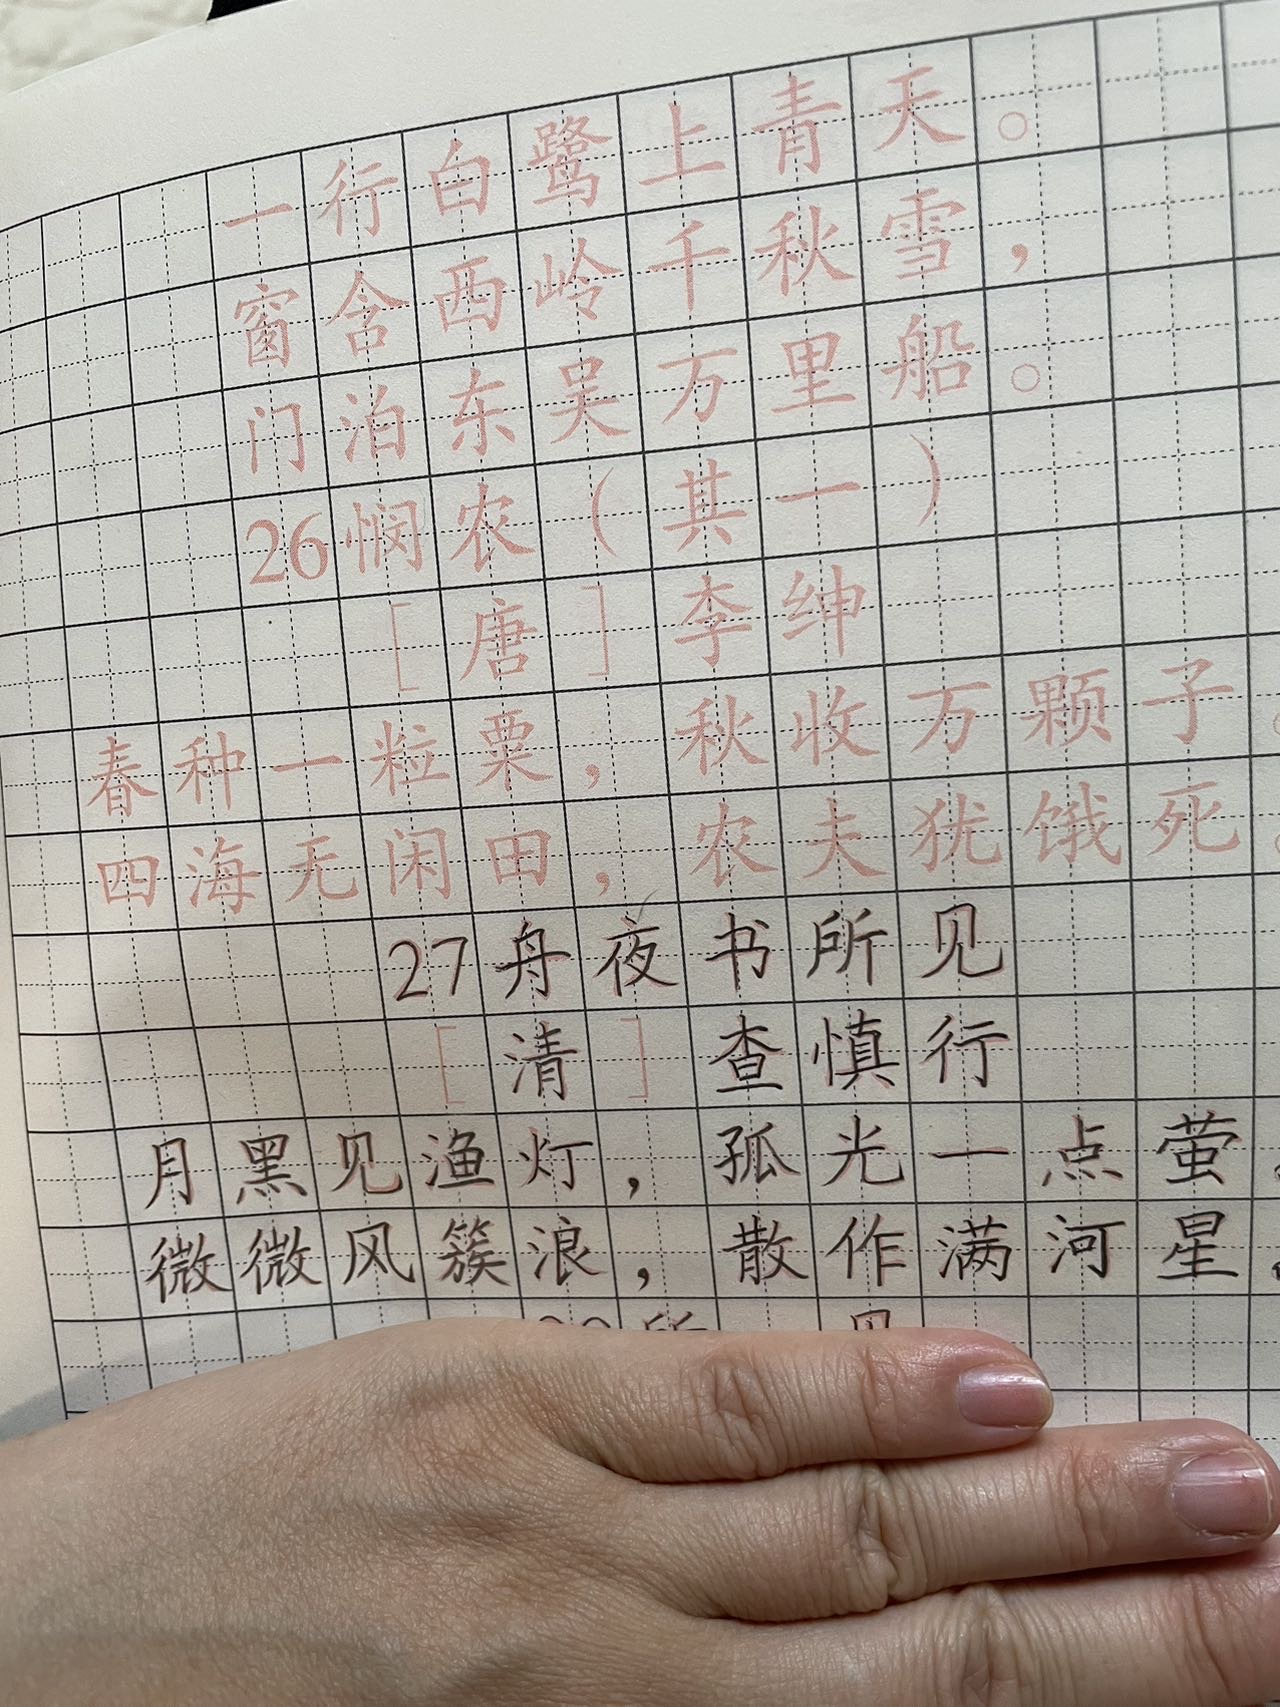 一行白鹭上青天。
窗含西岭千秋雪，
门泊东吴万里船。
26悯农（其一）
［唐］李绅
春种一粒粟，秋收万颗子。
四海无闲田，农夫犹饿死。
27舟夜书所见
［清］查慎行
月黑见渔灯，孤光一点萤。
微微风簇浪，散作满河星。